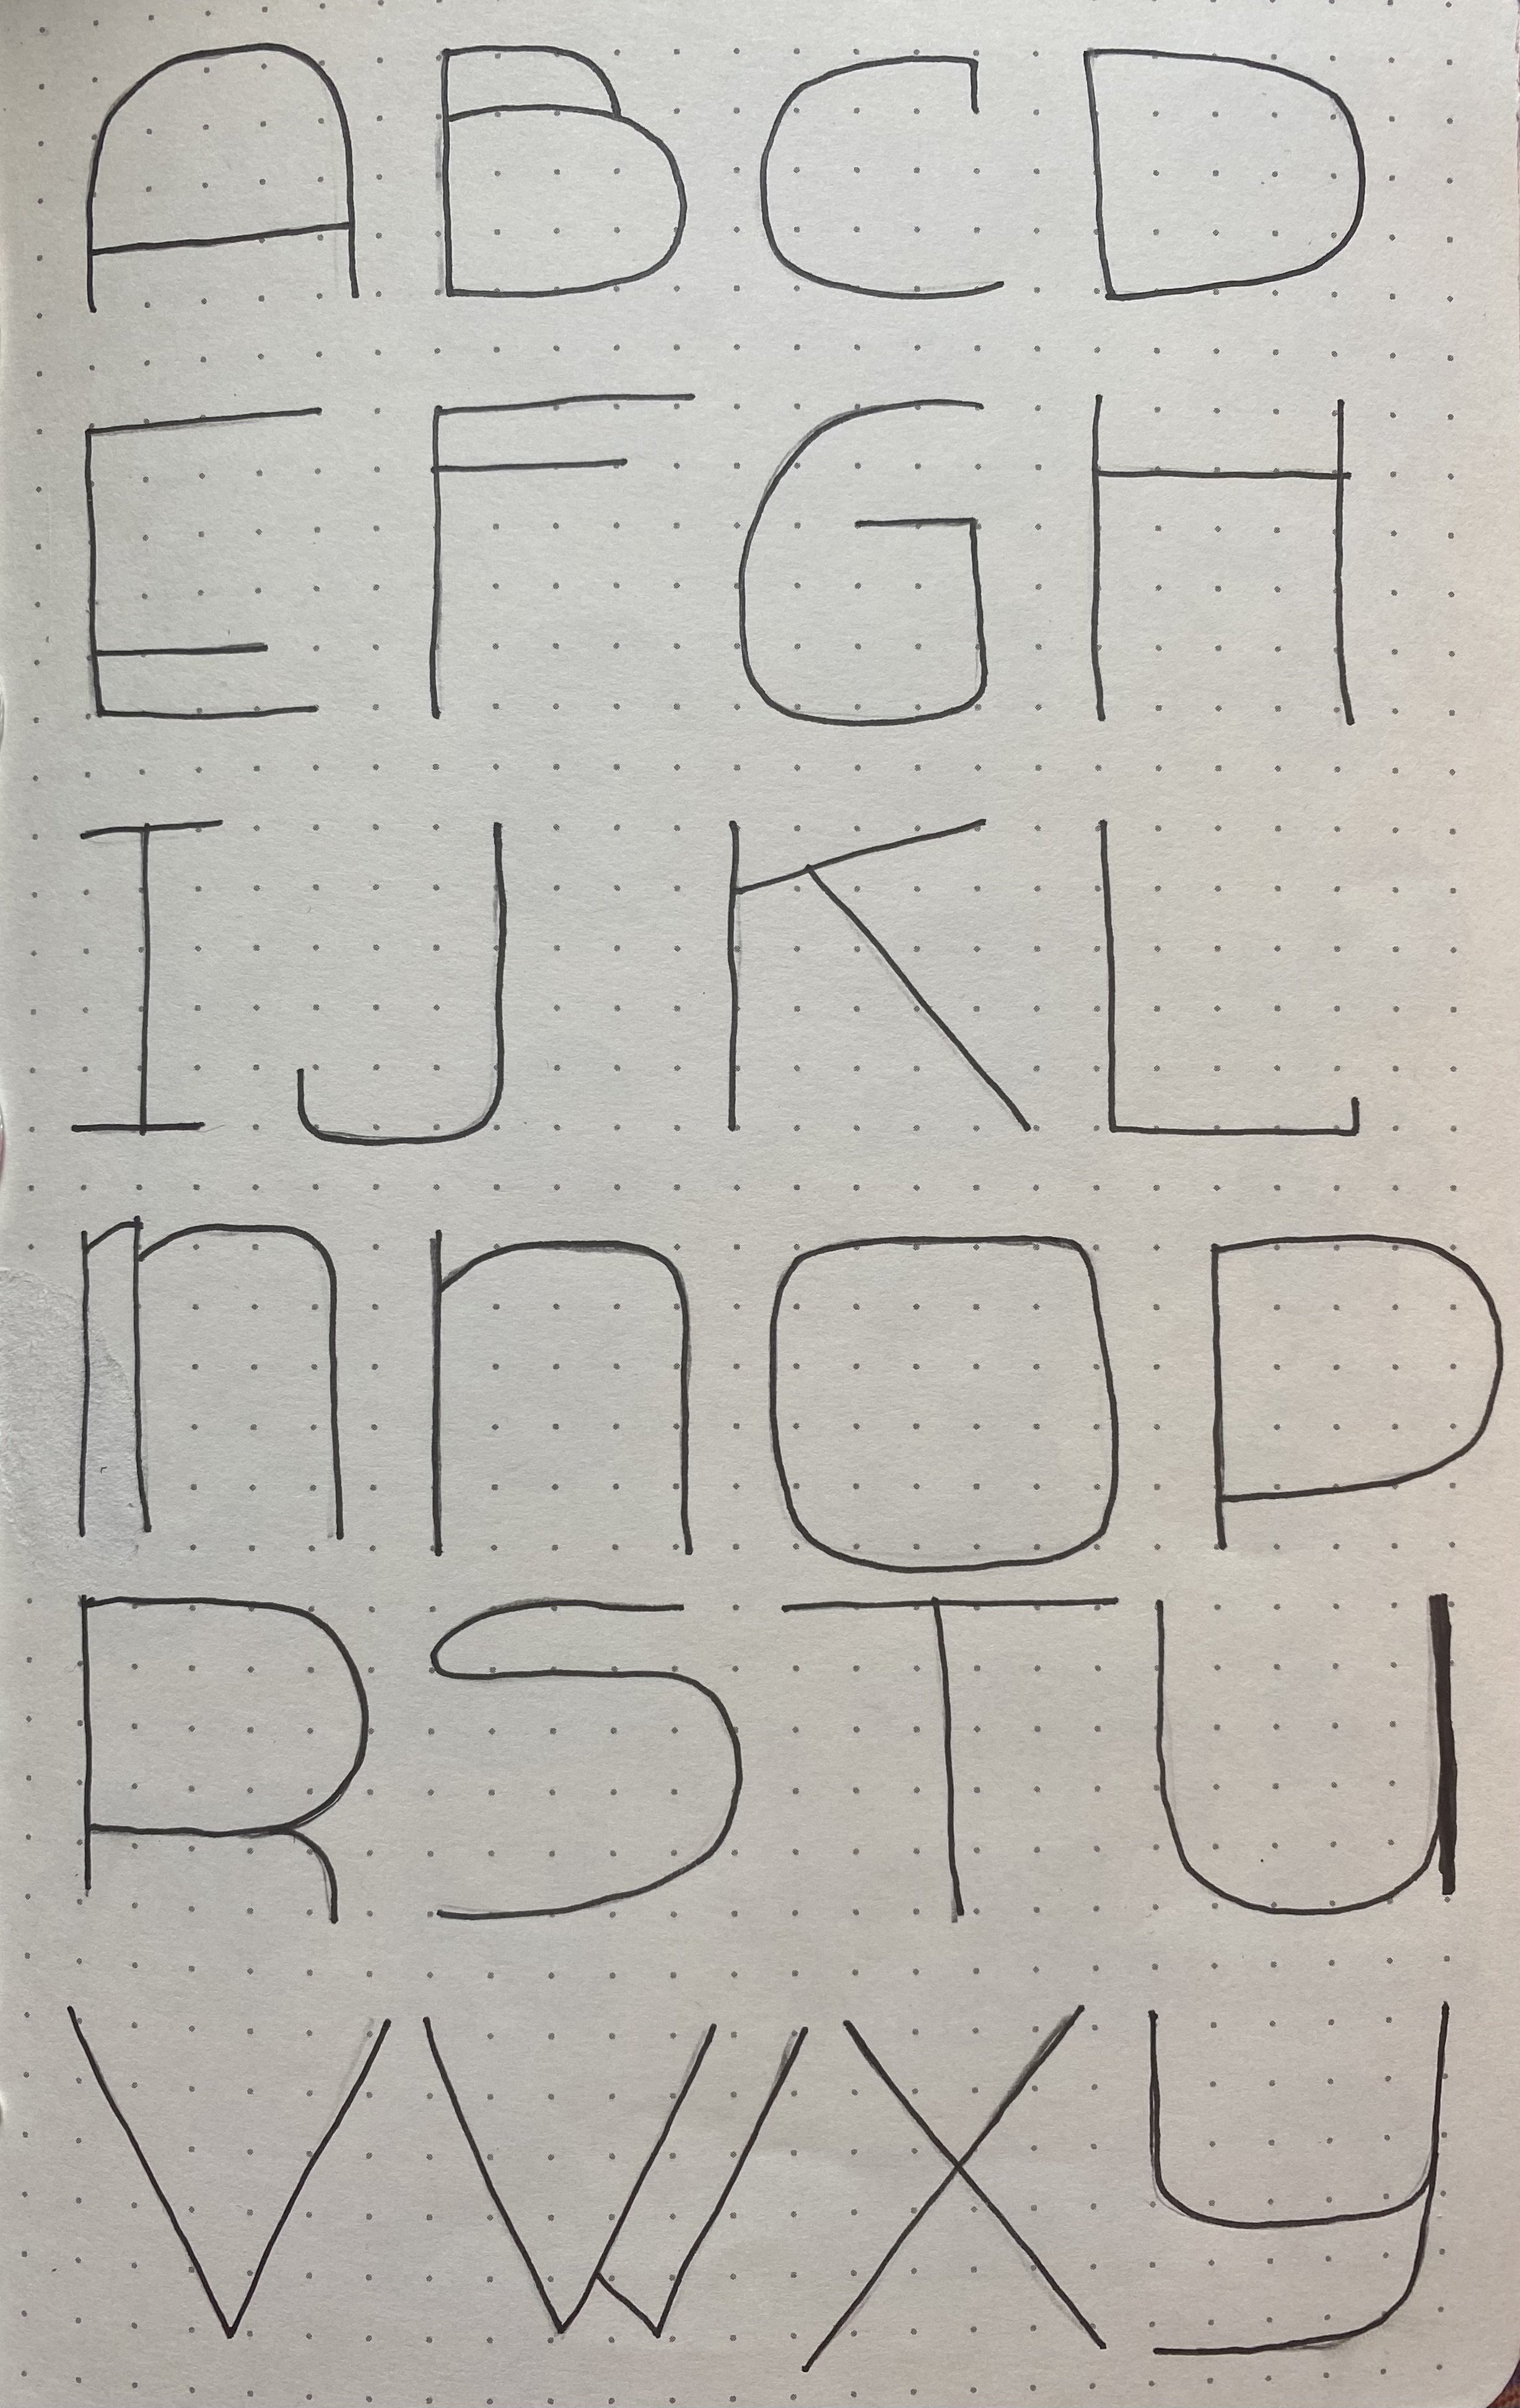 A B C D
E F G H
I J K L
m n O P
R S T U
V W X y